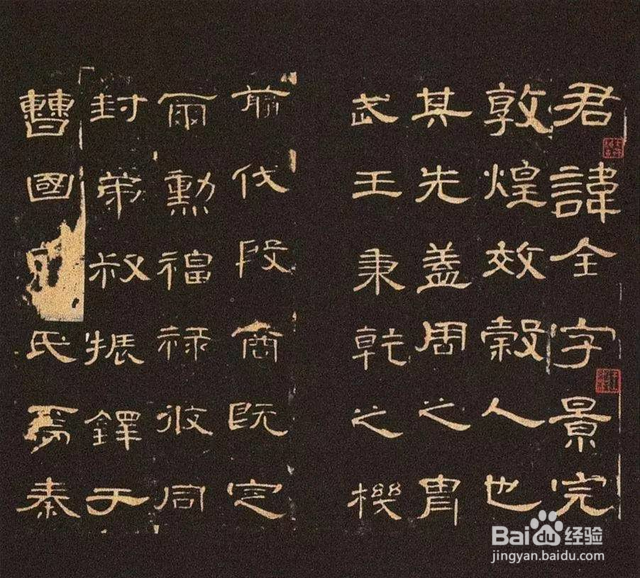 君諱全字景完
敦煌效穀人也
其先蓋周之胄
武王秉乾之機
翦伐殷商既定
爾勳福祿攸同
封弟叔振鐸于
曹國氏焉秦
Baidu经验
jingyan.baidu.com